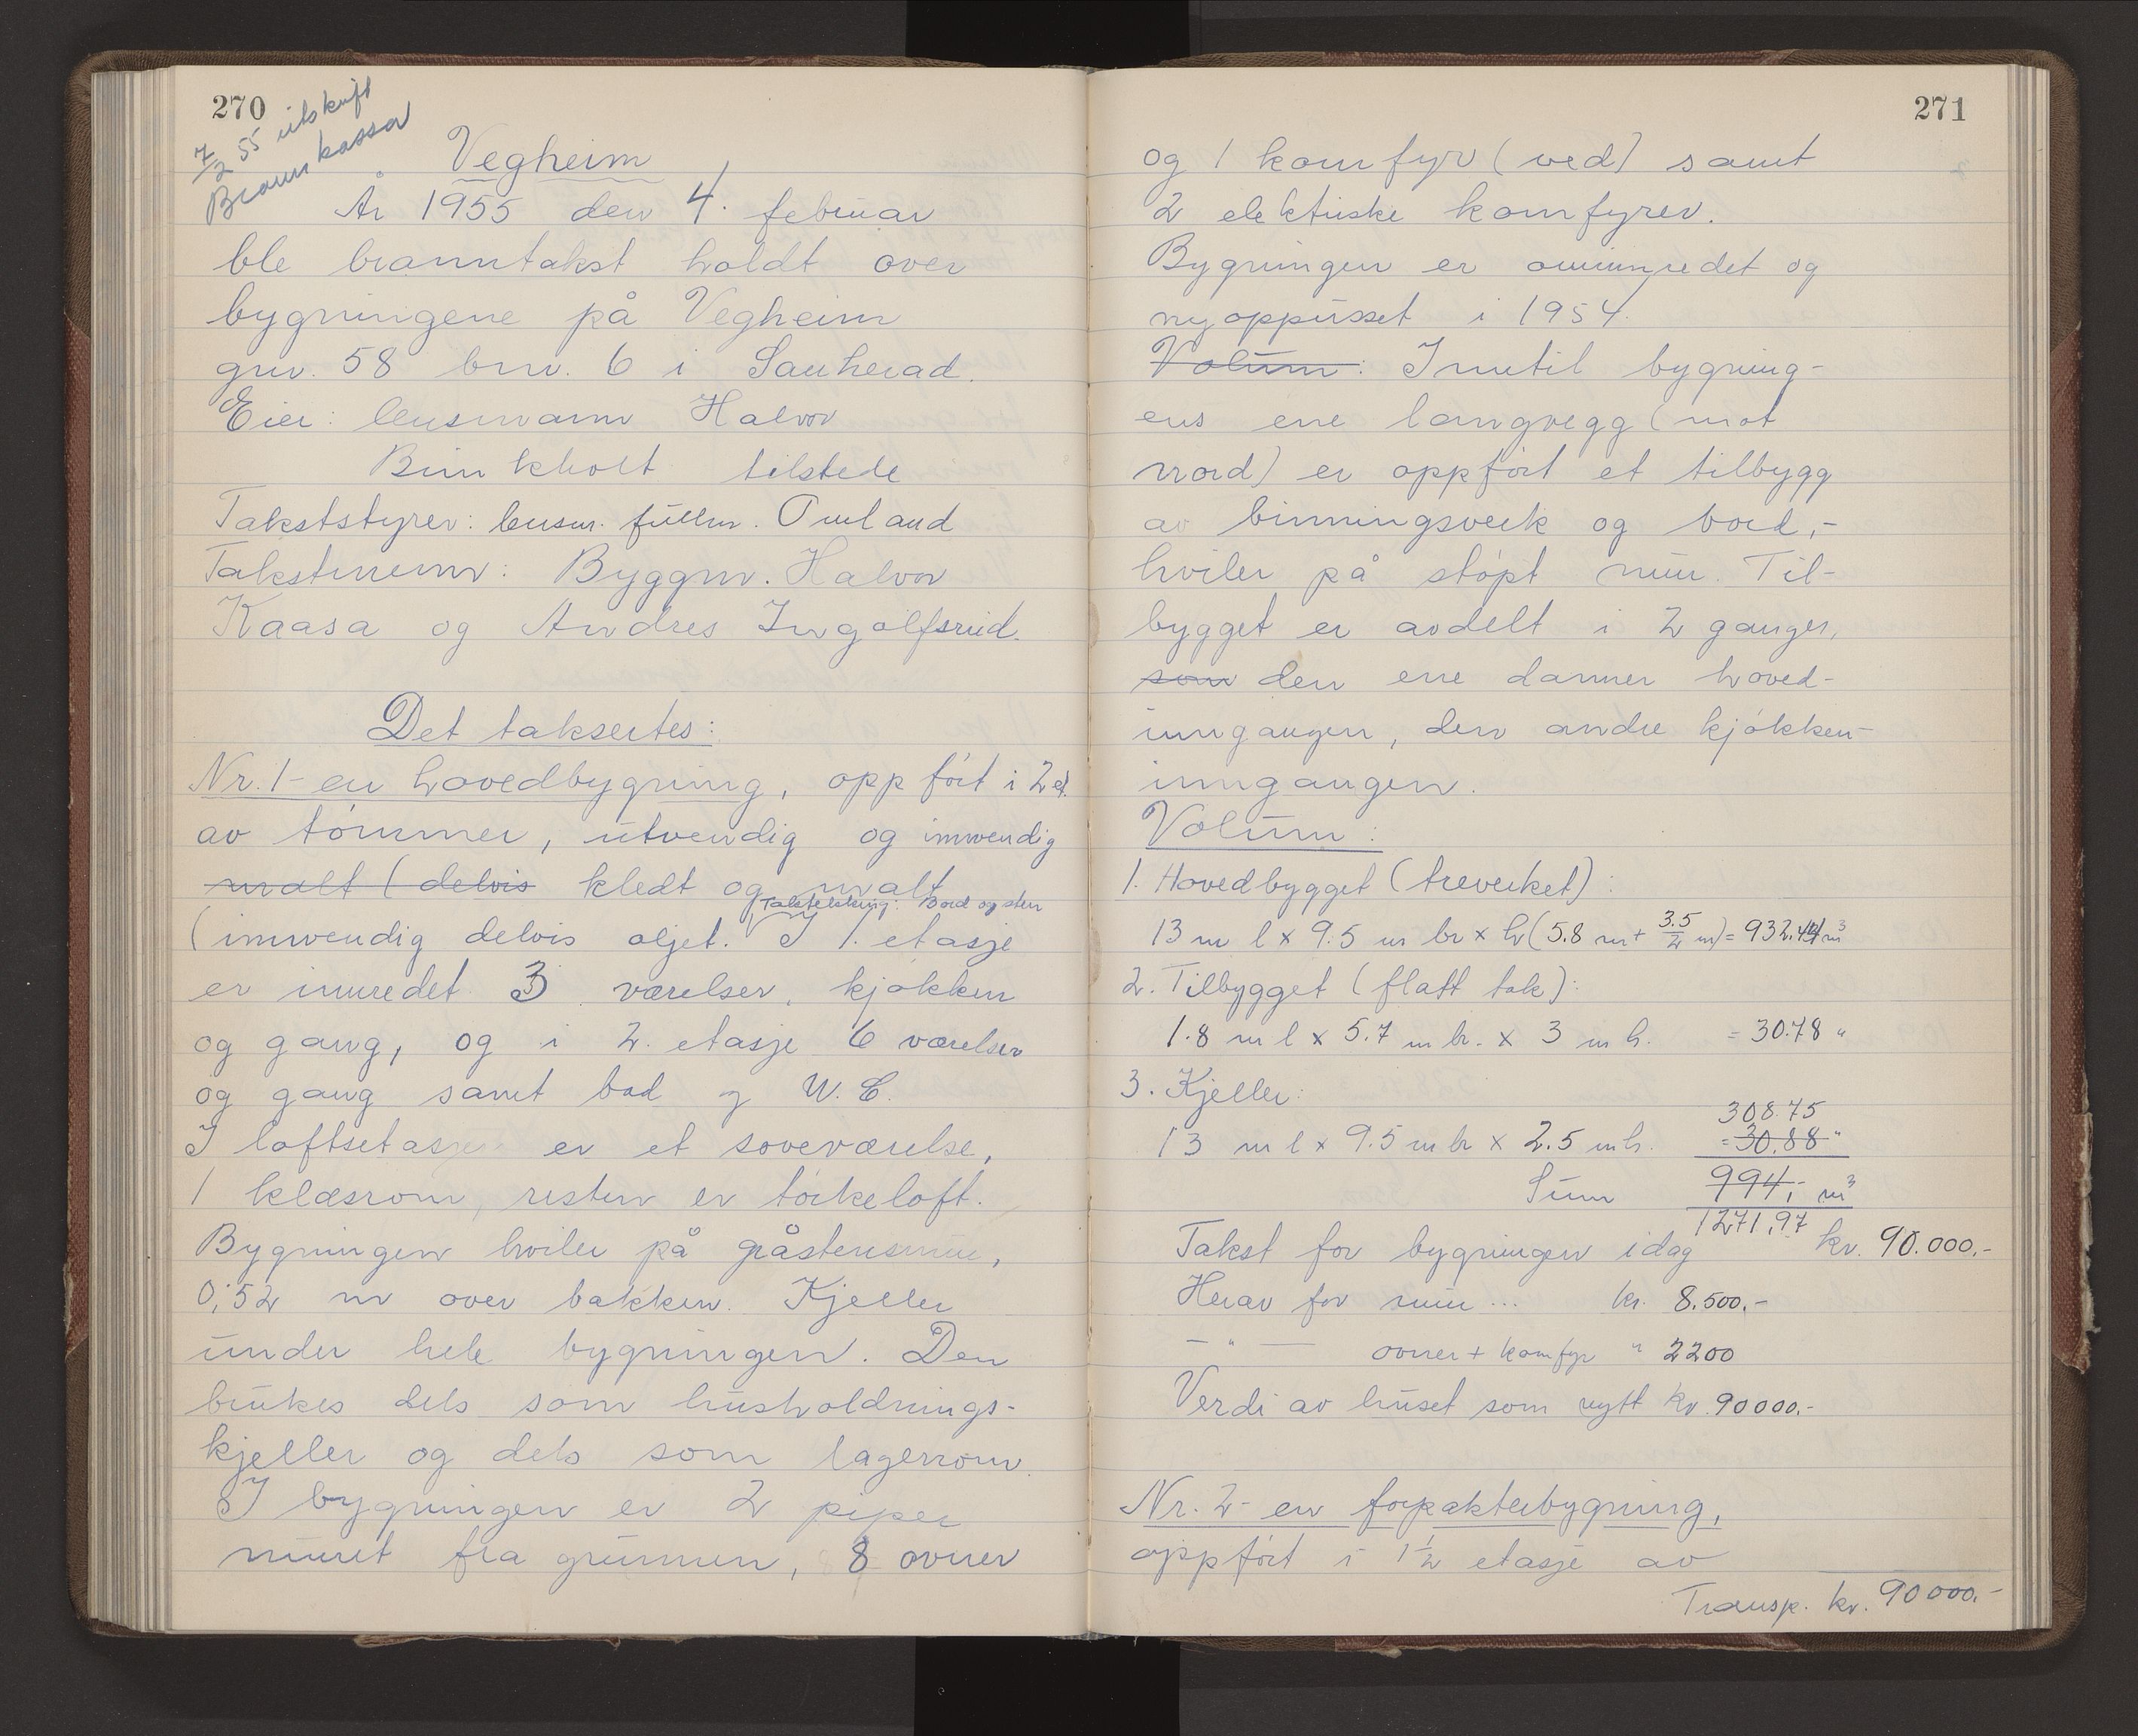 270
7/2 55 utskrift
Brannkassa
Vegheim
År 1955 den 4. februar
ble branntakst holdt over
bygningene på Vegheim
gnr. 58 bnr. 6 i Sauherad.
Eier: lensmann Halvor
Bunkholt tilstede
Takststyrer: lensm. fullm. Omland
Takstmenn: Byggm. Halvor
Kaasa og Andres Ingolfsrud.
Det taksertes:
Nr. 1 - en hovedbygning, oppfört i 2 et.
av tömmer, utvendig og innvendig
malt (delvis kledt og malt
Taktekking: Bord og sten
(innvendig delvis oljet. I 1. etasje
er innredet 3 værelser, kjökken
og gang, og i 2. etasje 6 værelser
og gang samt bad og W.C.
I loftsetasje er et soveværelse,
1 klæsrom, resten er törkeloft.
Bygningen hviler på gråstensmur,
0,52 m over bakken. Kjeller
under hele bygningen. Den
brukes dels som husholdnings-
kjeller og dels som lagerrom.
I bygningen er 2 piper
muret fra grunnen, 8 ovner
271
og 1 komfyr (ved) samt
2 elektriske komfyrer.
Bygningen er ominnredet og
nyoppusset i 1954.
Volum: Inntil bygning-
ens ene langvegg (mot
nord) er oppfört et tilbygg
av binningsverk og bord, -
hviler på stöpt mur. Til-
bygget er avdelt i 2 ganger,
som den ene danner hoved-
inngangen, den andre kjökken-
inngangen.
Volum:
1. Hovedbygget (treverket):
13 m l x 9.5 m br x h (5.8 m + 3.5/2 m) = 932.44 m³
2. Tilbygget (flatt tak):
1.8 m l x 5.7 m br. x 3 m h. = 30.78 "
3. Kjeller:
308.75
13 m l x 9.5 m br x 2.5 m h. = 30.88 "
Sum 994,- m³
1271,97
Takst for bygningen idag kr. 90.000.-
Herav for mur ... kr. 8.500.-
- " - ovner + komfyr " 2200
Verdi av huset som nytt kr. 90000.-
Nr. 2 - en forpakterbygning,
oppfört i 1 1/2 etasje av
Transp. kr. 90000.-